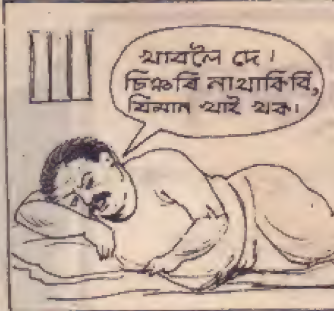 খাবলৈ দে।
চিঞৰি নাথাকিবি,
যিমান খাই খক।